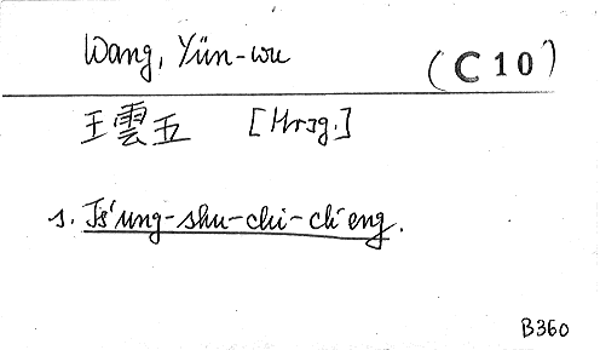 Wang, Yün-wu
(C 10)
王雲五 [Hrsg.]
s. Ts'ung-shu-chi-ch'eng.
B360